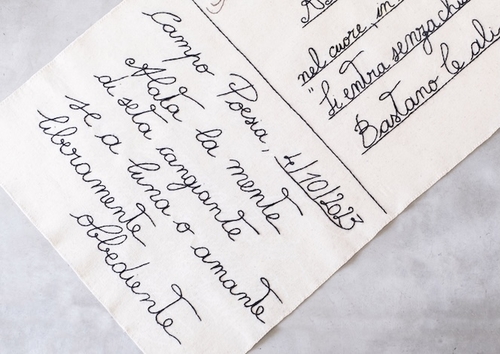 Campo Poesia, 4/10/2023
Alata la mente
di seta cangiante
se a luna o amante
liberamente
obbediente
nel cuore, in
"Si entra senza
Bastano le ali